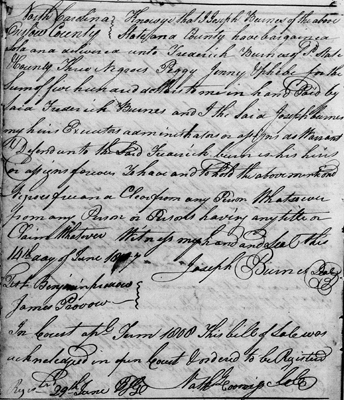 North Carolina } Know ye that I Joseph Burnes of the above
County } State and County have bargained
sold and delivered unto Frederick Burnes of Sd State
County Three Negroes Peggy Jenny Phebe for the
Sum of five hundred dollars to me in hand Paid by
said Frederick Burnes and I the Said Joseph Burnes
my heirs Executors administrators or assigns do Warrant
Defend unto the Said Frederick burnes his heirs
or assigns forever to have and to hold the above mentioned
Negroes free and Clear from any Person Whatsoever
from any Person or Persons having any title or
Claim Whatever Witness my hand and Seal this
14th day of June
Joseph Burnes Seal
Test Benjamin
James
In Court Term 1808 This bill of Sale was
acknowledged in open Court & ordered to be Registered
29th June